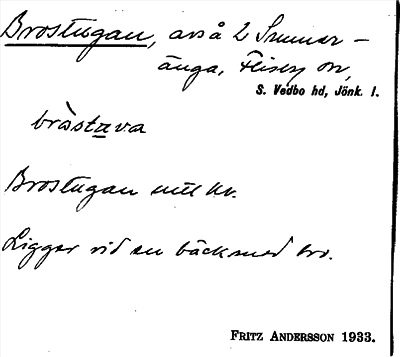 Brostugan, avs å 2 Sunnar-
änga, Flisby sn,
S. Vedbo hd, Jönk. l.
bròstava
Brostugan utt hr.
Ligger vid en bäck med bro.
FRITZ ANDERSSON 1933.